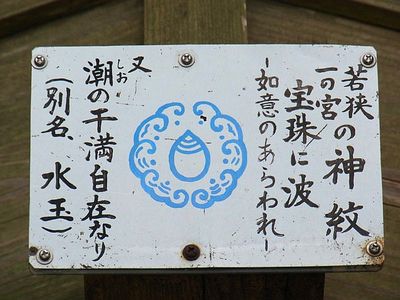 若狭の神紋
一の宮
宝珠に波
-如意のあらわれ-
又
潮の干満自在なり
しお
(別名、水玉)